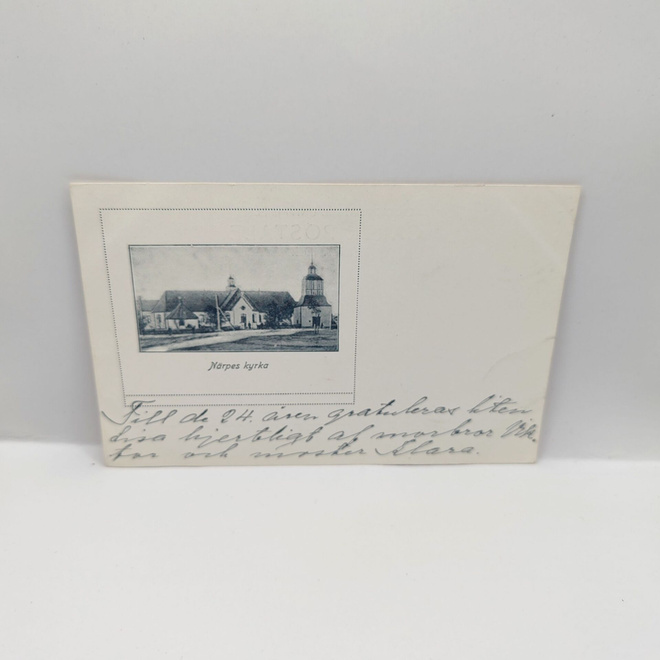 Närpes kyrka
Till de 24. åren gratuleras liten
Lisa hjertligt af morbror Vik-
tor och moster Klara.